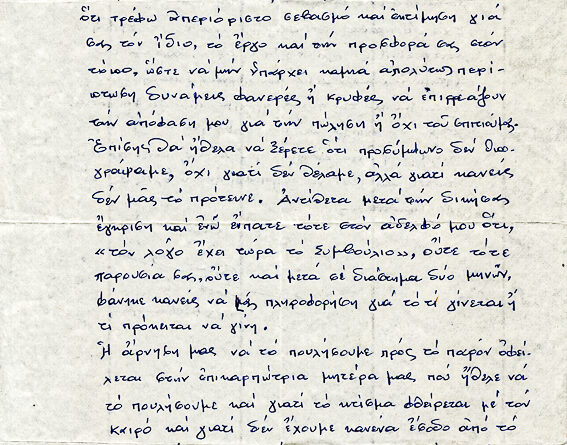 ὅτι τρέφω ἀπεριόριστο σεβασμό καί ἐκτίμηση γιά
σᾶς τόν ἴδιο, τό ἔργο καί τήν προσφορά σας στόν
τόπο, ὥστε νά μήν ὑπάρχει καμιά ἀπολύτως περί-
πτωση δυνάμεις φανερές ἤ κρυφές νά ἐπηρεάζουν
τήν ἀπόφαση μου γιά τήν πώληση ἤ ὄχι τοῦ σπιτιοῦ μας.
Ἐπίσης θά ἤθελα νά ξέρετε ὅτι προσύμφωνο δέν ὑπο-
γράψαμε, ὄχι γιατί δέν θέλαμε, ἀλλά γιατί κανείς
δέν μᾶς τό πρότεινε. Ἀντίθετα μετά τήν δική σας
ἔγκριση καί ἐνῶ εἴπατε τότε στόν ἀδελφό μου ὅτι,
«τόν λόγο ἔχει τώρα τό Συμβούλιο», οὔτε τότε
παρουσία σας, οὔτε καί μετά σέ διάστημα δύο μηνῶν,
φάνηκε κανείς νά μᾶς πληροφορήση γιά τό τί γίνεται ἤ
τί πρόκειται νά γίνη.
Ἡ ἄρνηση μας νά τό πουλήσουμε πρός τό παρόν ὀφεί-
λεται στήν ἐπικαρπώτρια μητέρα μας πού ἤθελε νά
τό πουλήσουμε καί γιατί τό κτίσμα φθείρεται μέ τόν
καιρό καί γιατί δέν ἔχουμε κανένα ἔσοδο ἀπό τό